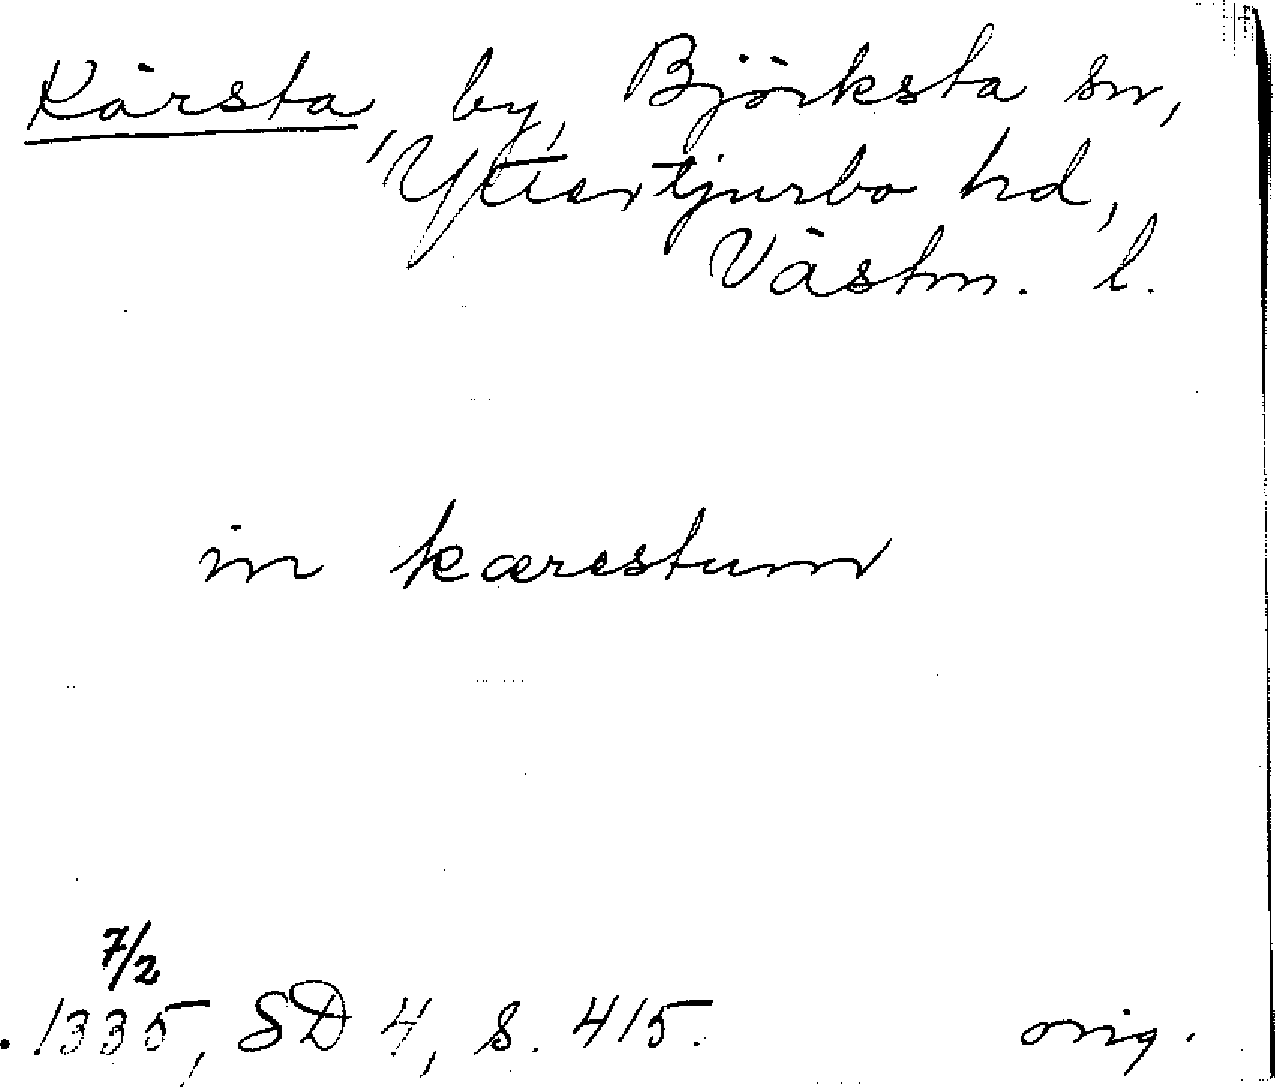 Kärsta, by, Björksta sn,
Yttertjurbo hd,
Västm. l.
in kærestum
7/2
1335, SD 4, s. 415.
orig.